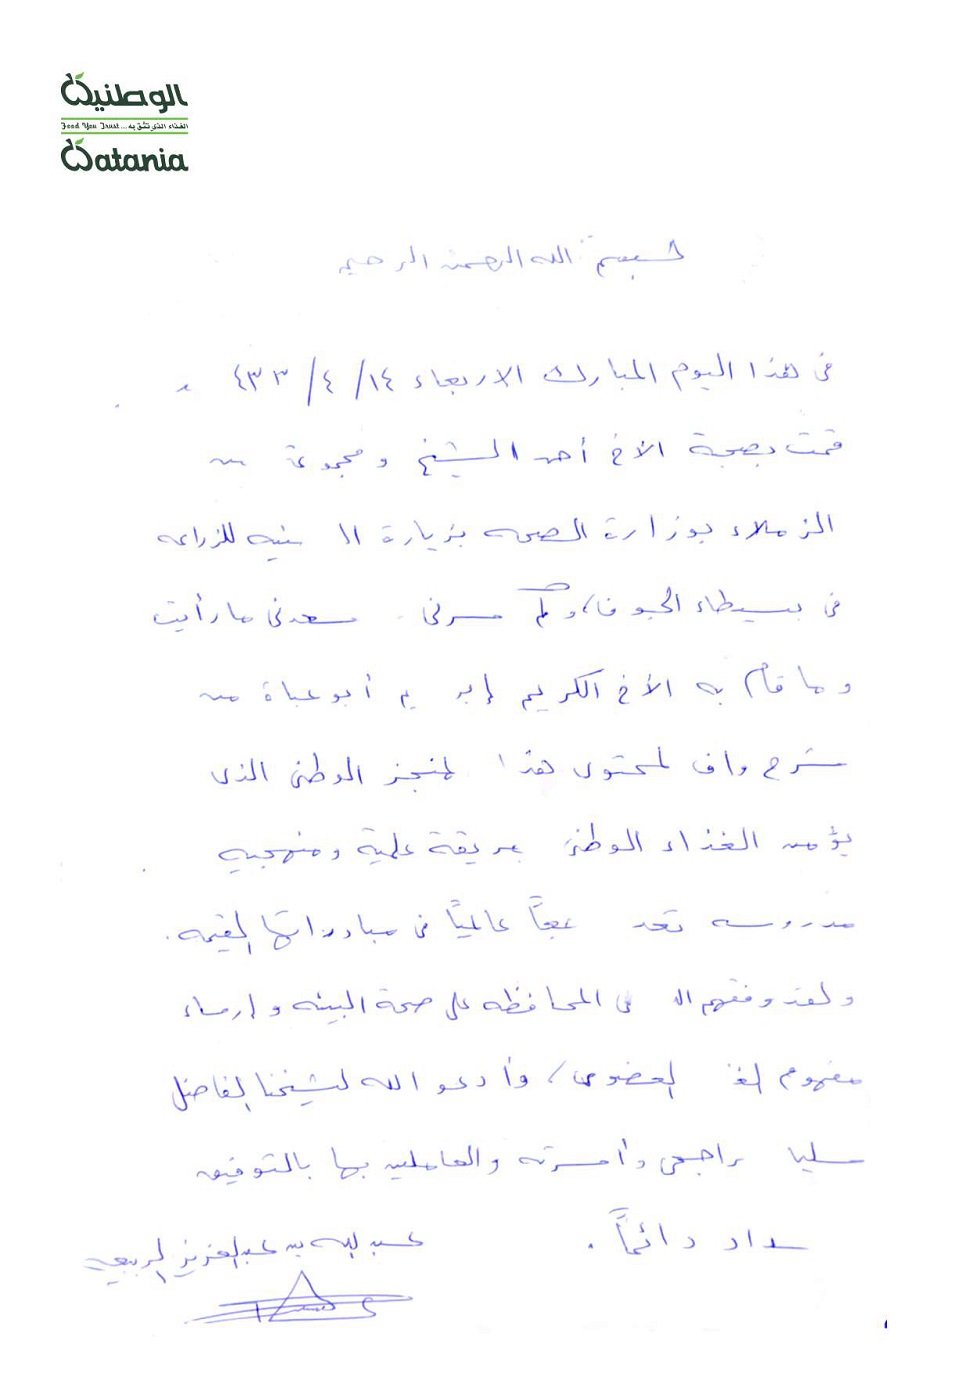 الوطنية
Food You Trust... الغذاء الذي تثق به
Watania
بسم الله الرحمن الرحيم
في هذا اليوم المبارك الاربعاء ١٤/ ٤/ ٤٣٣
قمت بصحبة الأخ أحمد الشيخ ومجموعة من
الزملاء بوزارة الصحه بزيارة للزراعه
في بسيطاء الجوف، وكم سرني سعدني ما رأيت
وما قام به الأخ الكريم أبو عباة من
شرح واف لمحتوى هذا لمنجز الوطني الذي
يؤمن الغذاء الوطني بطريقة علمية ومنهجيه
مدروسه تعد عالميًا في مبادراتها القيمه.
ولقد وفقهم في المحافظه على صحة البيئه وإرساء
مفهوم العضوي، وأدعو الله لشيخنا الفاضل
راجحي وأسرته والعاملين بها بالتوفيق
سداد دائمًا.
عبد الله بن عبدالعزيز الربيعه